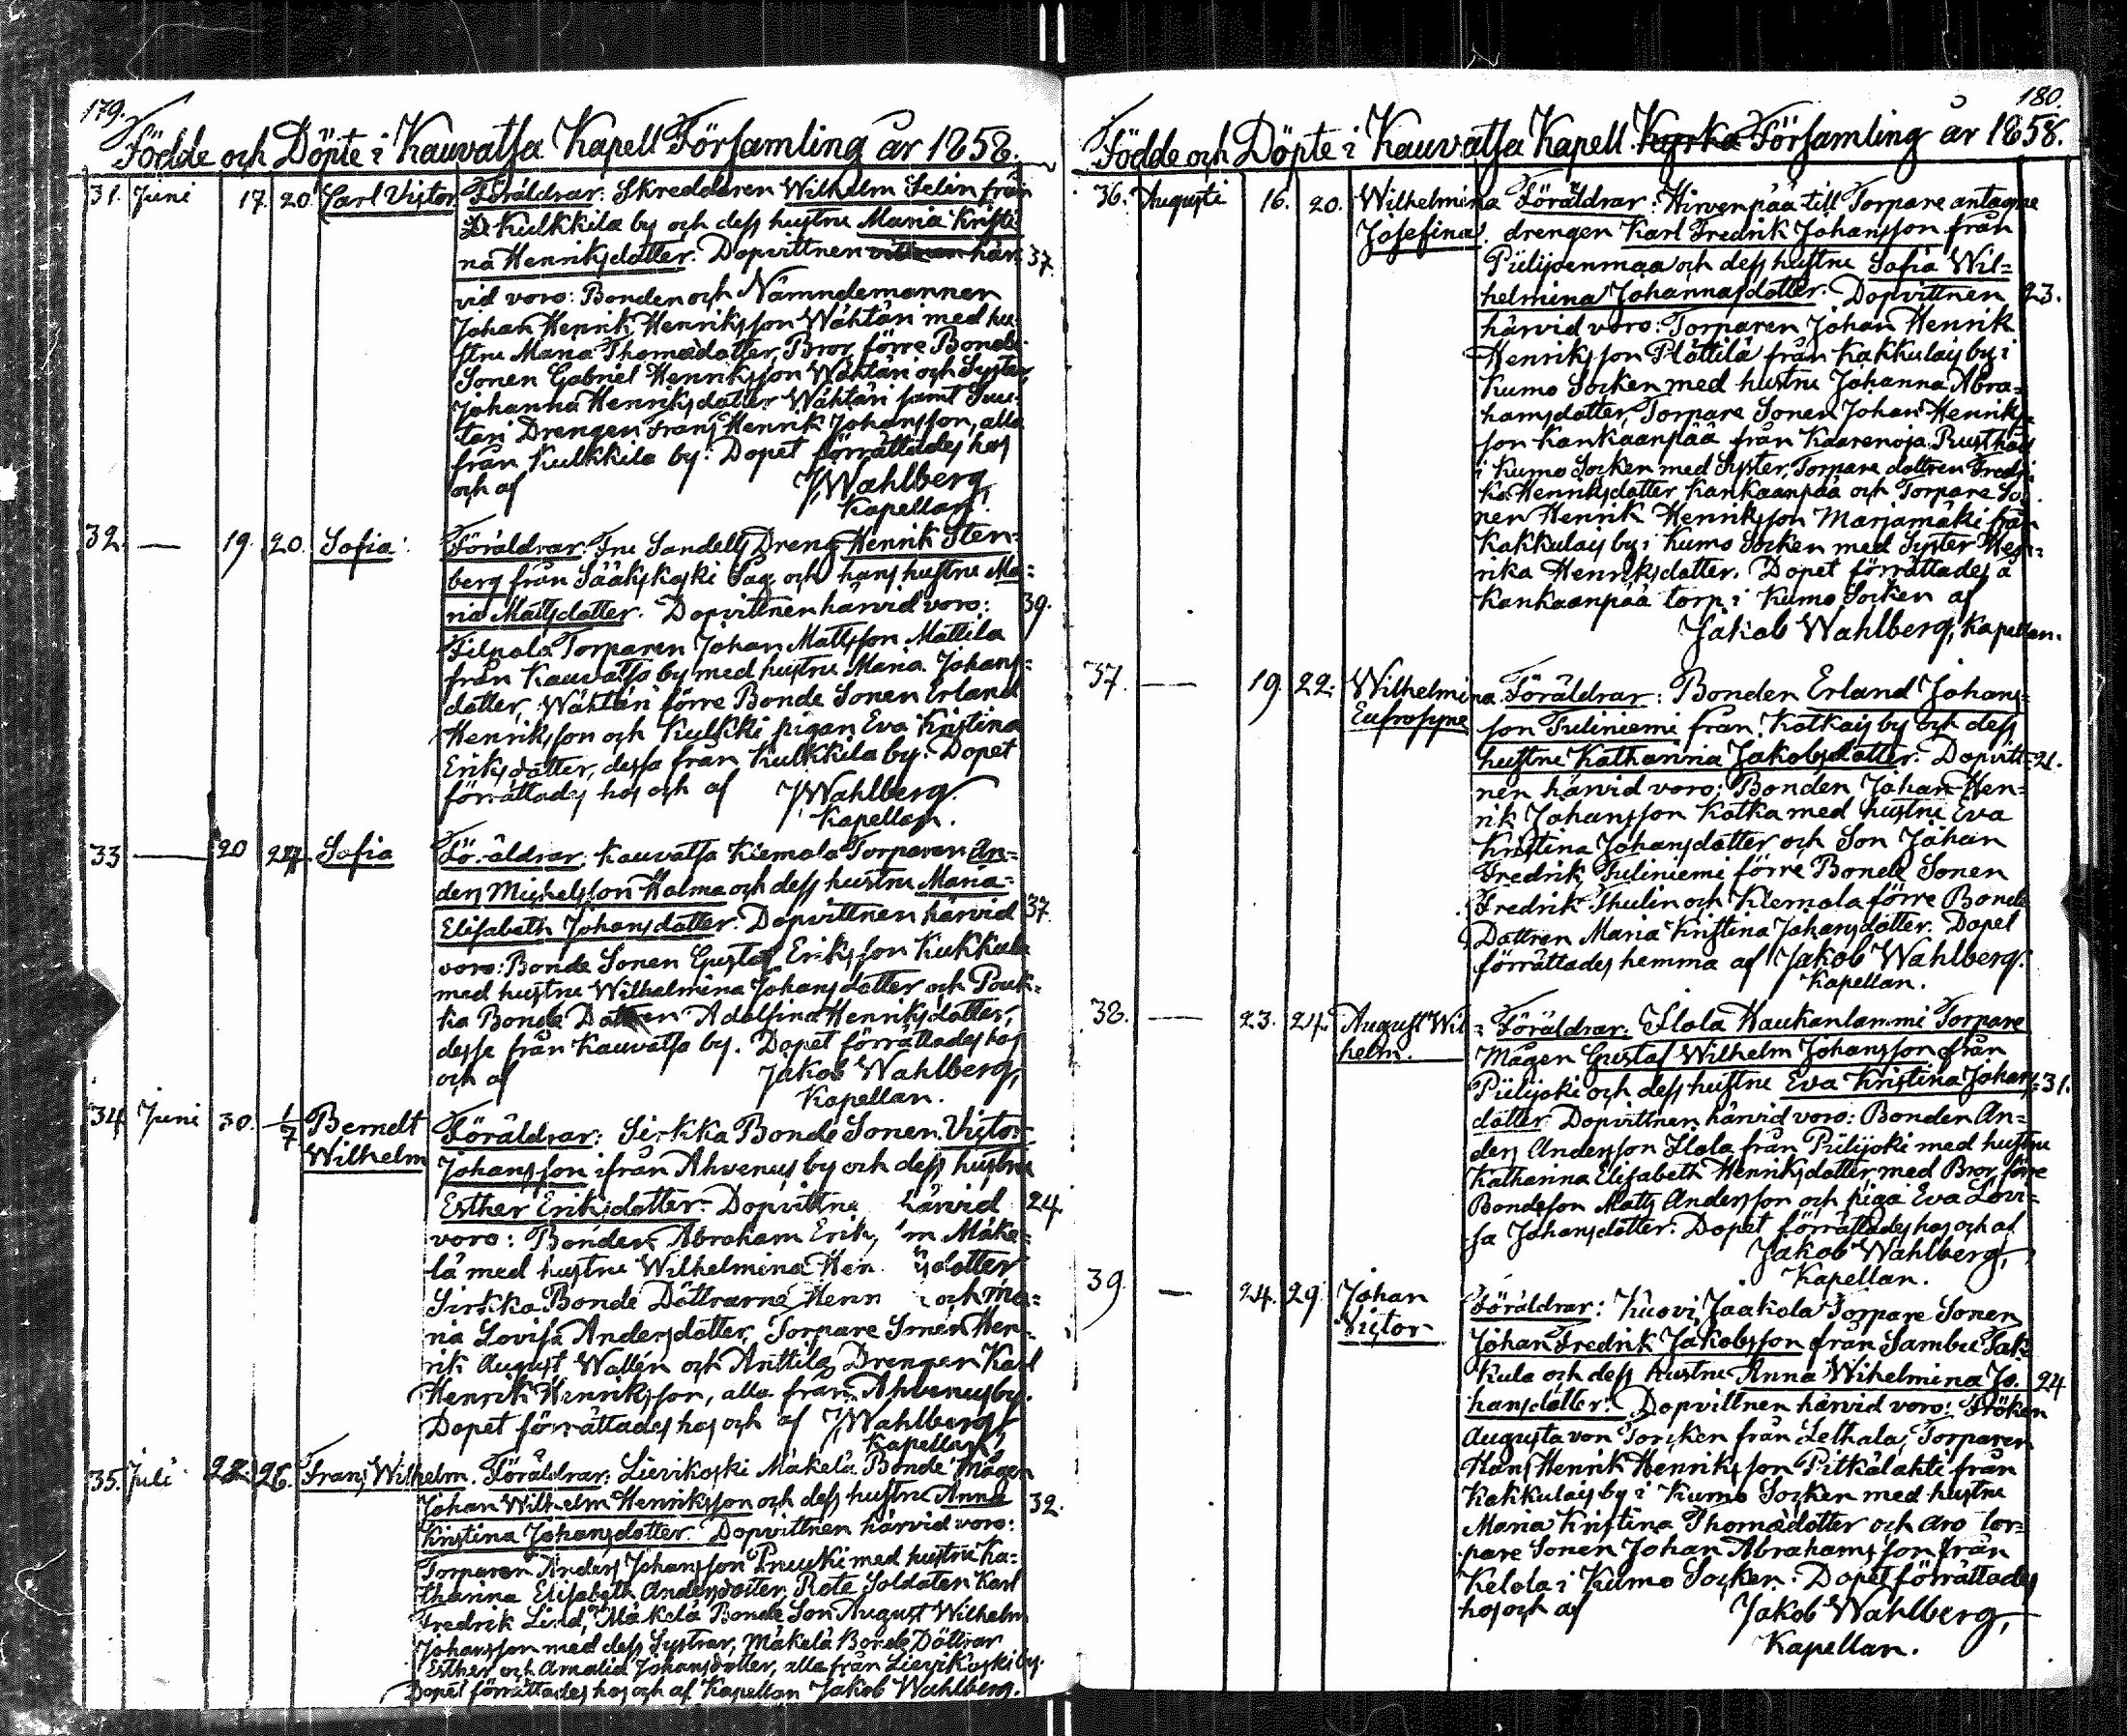 179.
Födde och Döpte i Kauvatsa Kapell Församling år 1858.
31. Juni 17. 20. Carl Victor Föräldrar: Skreddaren Wilhelm Selin från
Kulkkila by och dess hustru Maria Kristi
na Henriksdotter. Dopvittnen här- 37.
vid voro: Bonden och Nämndemannen
Johan Henrik Henriksson Wähtäri med hu-
stru Maria Thomædotter, Bror, förre Bonde
Sonen Gabriel Henriksson Wähtäri och Syster
Johanna Henriksdotter Wähtäri samt Suu-
tari Drengen Frans Henrik Johansson, alla
från Kulkkila by. Dopet förrättades hos
och af J. Wahlberg,
Kapellan.
32. — 19. 20. Sofia. Föräldrar: Fru Sandells Dreng Henrik Sten-
berg från Sääkskoski Såg och hans hustru Ma-
ria Mattsdotter. Dopvittnen härvid voro: 39.
Filpola Torparen Johan Mattsson Mattila
från Kauvatsa by med hustru Maria Johans-
dotter, Wähtäri förre Bonde Sonen Erland
Henriksson och Kulkki pigan Eva Kristina
Eriksdotter, dessa från Kulkkila by. Dopet
förrättades hos och af J. Wahlberg.
Kapellan.
33 — 20 27 Sofia Föräldrar: Kauvatsa Kiemola Torparen An-
ders Michelsson Holma och dess hustru Maria
Elisabeth Johansdotter. Dopvittnen härvid 37.
voro: Bonde Sonen Gustaf Eriksson Kukkula
med hustru Wilhelmina Johansdotter och Pouk-
ka Bonde Dottren Adolfina Henriksdotter,
dessa från Kauvatsa by. Dopet förrättades hos
och af Jakob Wahlberg,
Kapellan.
34 Juni 30. 1/7 Berndt Föräldrar: Sirkka Bonde Sonen Victor
Wilhelm Johansson ifrån Ahvenus by och dess hustru
Esther Eriksdotter. Dopvittne härvid 24.
voro: Bonden Abraham Eriks n Mäke-
lä med hustru Wilhelmina Hen sdotter
Sirkka Bonde Döttrarne Henri och Ma-
ria Lovisa Andersdotter, Torpare Sonen Hen-
rik August Wallén och Anttila Drengen Karl
Henrik Henriksson, alla från Ahvenus by.
Dopet förrättades hos och af J. Wahlberg
Kapellan.
35. Juli 22. 26. Frans Wilhelm. Föräldrar: Lievikoski Mäkelä Bonde Mågen
Johan Wilhelm Henriksson och dess hustru Anna 32.
Kristina Johansdotter. Dopvittnen härvid voro:
Torparen Anders Johansson Preuski med hustru Ka-
tharina Elisabeth Andersdotter, Rote Soldaten Karl
Fredrik Lind, Mäkelä Bonde Son August Wilhelm
Johansson med dess Systrar, Mäkelä Bonde Döttrar
Esther och Amalia Johansdotter, alla från Lievikoski by.
Dopet förrättades hos och af Kapellan Jakob Wahlberg.
180.
Födde och Döpte i Kauvatsa Kapell Kyrko Församling år 1858.
36. Augusti 16. 20. Wilhelmina Föräldrar: Hirvenpää till Torpare antagne
Josefina. drengen Karl Fredrik Johansson från
Piilijoenmaa och dess hustru Sofia Wil-
helmina Johannasdotter. Dopvittnen 23.
härvid voro: Torparen Johan Henrik
Henriksson Plättilä från Kakkulais by i
Kumo Socken med hustru Johanna Abra-
hamsdotter, Torpare Sonen Johan Henriks-
son Kankaanpää från Kaarenoja Rusthåll
i Kumo Socken med Syster, Torpare dottren Fredri
ka Henriksdotter Kankaanpää och Torpare So-
nen Henrik Henriksson Marjamäki från
Kakkulais by i Kumo Socken med Syster Hen-
rika Henriksdotter. Dopet förrättades å
Kankaanpää torp i Kumo Socken af
Jakob Wahlberg, Kapellan.
37. — 19. 22. Wilhelmina Föräldrar: Bonden Erland Johans-
Eufrosyne son Tuliniemi från Kotkais by och dess
hustru Katharina Jakobsdotter. Dopvitt- 21.
nen härvid voro: Bonden Johan Hen-
rik Johansson Kotka med hustru Eva
Kristina Johansdotter och Son Johan
Fredrik, Tuliniemi förre Bonde Sonen
Fredrik Thulin och Kiemola förre Bonde
Dottren Maria Kristina Johansdotter. Dopet
förrättades hemma af Jakob Wahlberg.
Kapellan.
38. — 23. 24. August Wil- Föräldrar: Ilola Haukanlammi Torpare
helm. Mågen Gustaf Wilhelm Johansson från
Piilijoki och dess hustru Eva Kristina Johans- 31.
dotter. Dopvittnen härvid voro: Bonden An-
ders Andersson Ilola från Piilijoki med hustru
Katharina Elisabeth Henriksdotter med Bror, förre
Bondeson Matts Andersson och piga Eva Lovi-
sa Johansdotter. Dopet förrättades hos och af
Jakob Wahlberg,
Kapellan.
39. — 24. 29. Johan Föräldrar: Kuovi Jaakola Torpare Sonen
Victor Johan Fredrik Jakobsson från Sambu Tak-
kula och dess hustru Anna Wilhelmina Jo- 24
hansdotter. Dopvittnen härvid voro: Fröken
Augusta von Torcken från Lethala, Torparen
Hans Henrik Henriksson Pitkälahti från
Kakkulais by i Kumo Socken med hustru
Maria Kristina Thomædotter och Aro tor-
pare Sonen Johan Abrahamsson från
Kelola i Kumo Socken. Dopet förrättades
hos och af Jakob Wahlberg,
Kapellan.